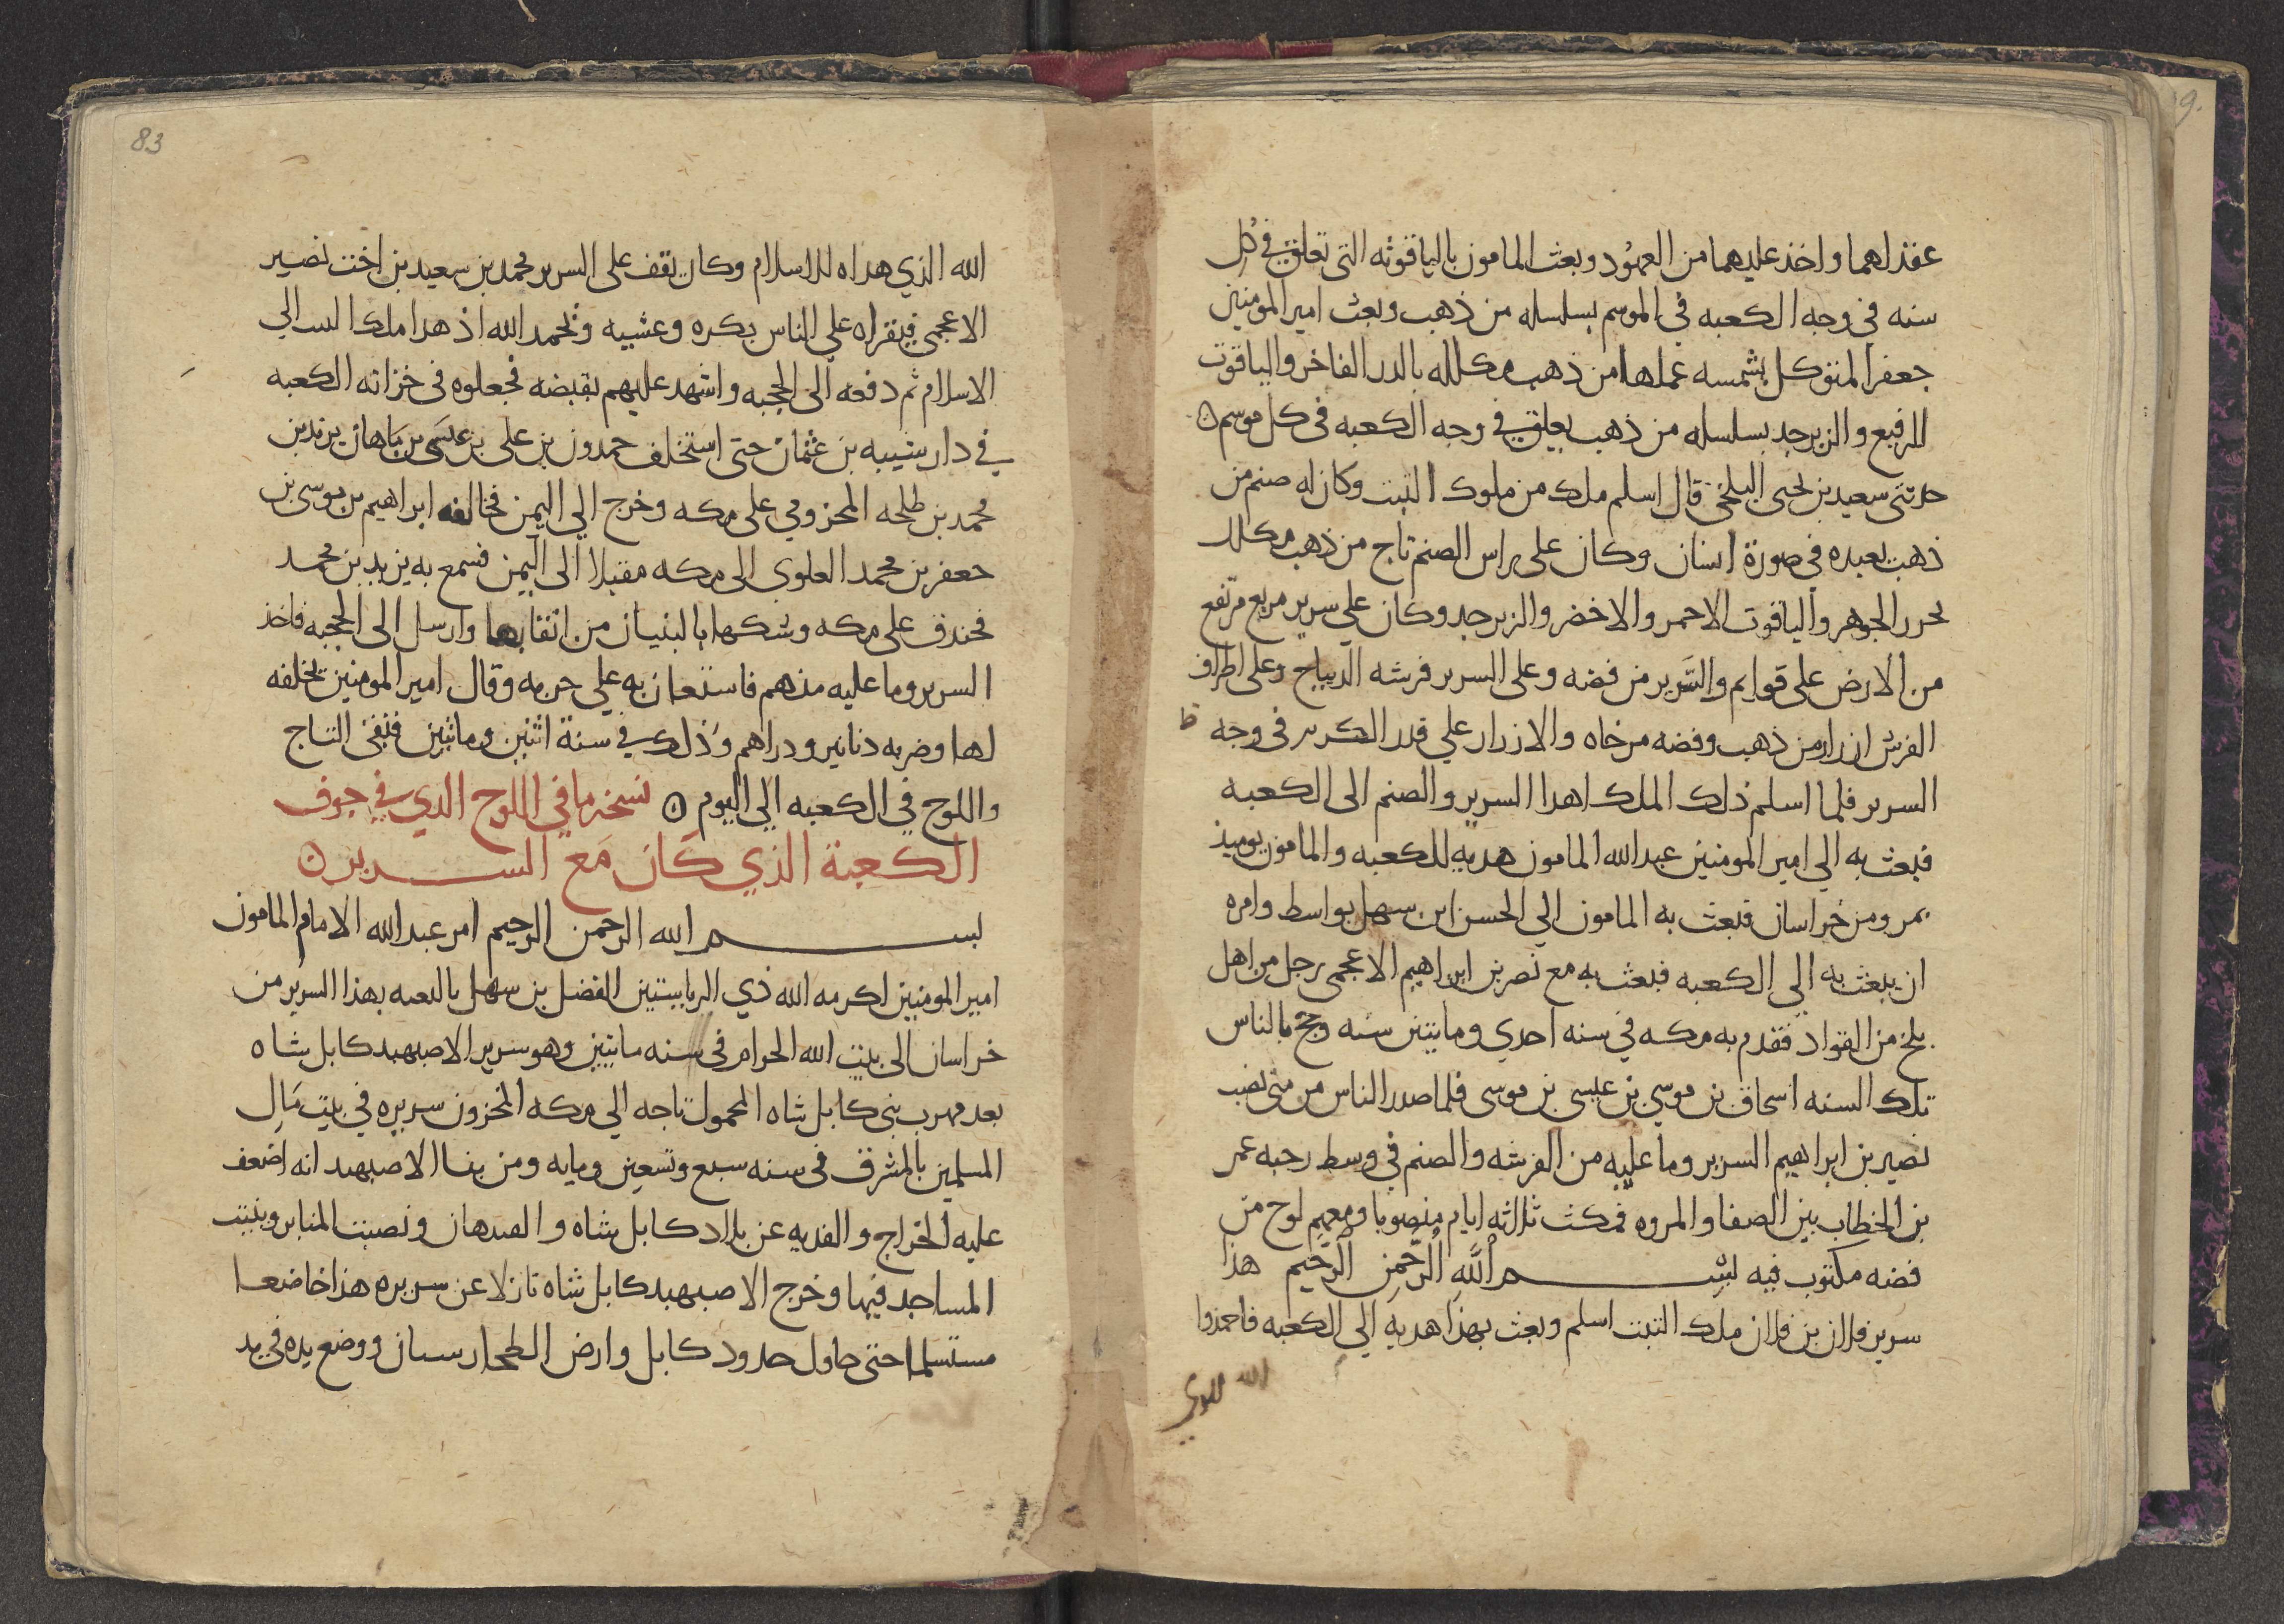 عقداهما واخذ عليهما من العهود وبعث المامون بالياقوته التى تعلق في كل
سنه في وجه الكعبه في الموسم بسلسله من ذهب وبعث امير المومنين
جعفر المتوكل بشمسه عملها من ذهب مكلله بالدر الفاخر والياقوت
الرفيع والزبرجد بسلسله من ذهب يعلق في وجه الكعبه في كل موسم
حدثنى سعيد بن يحى البلخى قال اسلم ملك من ملوك التبت وكان له صنم من
ذهب يعبده في صورة انسان وكان على راس الصنم تاج من ذهب مكلل
بحرر الجوهر والياقوت الاحمر والاخضر والزبرجد وكان على سرير مربع مرتفع
من الارض على قوايم والسرير من فضه وعلى السرير فرشه الديباج وعلى اطراف
الفرش ازرار من ذهب وفضه مرخاه والازرار علي قدر الكرىں فى وجه
السرير فلما اسلم ذلك الملك اهدا السرير والصنم الى الكعبه
فبعث به الي امير المومنين عبد الله المامون هديه للكعبه والمامون يوميذ
بمرو من خراسان فبعث به المامون الي الحسن ابن سهل بواسط وامره
ان يبعث به الي الكعبه فبعث به مع نصر بن ابراهيم الاعجمى رجل من اهل
بلخ من القواد فقدم به مكه في سنه احدي وماىتين سنه وحج بالناس
تلك السنه اسحاق بن موسي بن عيسى بن موسى فلما صدر الناس من منى نصب
نصير بن ابراهيم السرير وما عليه من الفرشه والصنم في وسط رحبه عمر
بن الخطاب بين الصفا والمروه فمكث ثلاثه ايام منصوبا ومعهم لوح من
فضه مكتوب فيه بسم الله الرحمن الرحيم هذا
سرير فلان بن فلان ملك التبت اسلم وبعث بهذا هديه الي الكعبه فاحمدوا
الله الذي
83
الله الذي هداه للاسلام وكان يقف على السرير محمد بن سعيد بن اخت نصير
الاعجمى فيقراه على الناس بكره وعشيه ونحمد الله اذ هدا ملك التبت الي
الاسلام ثم دفعه الى الحجبه واشهد عليهم بقبضه فجعلوه فى خزانه الكعبه
في دار شيبه بن عثمان حتى استخلف حمدون بن على بن عيسى بن ماهان يزيد بن
محمد بن طلحه المخزومي على مكه وخرج الي اليمن فخالفه ابراهيم بن موسى بن
جعفر بن محمد العلوي الى مكه مقبلا الى اليمن فسمع به يزيد بن محمد
فخندق على مكه وشكها بالبنيان من انقابها وارسل الى الحجبه فاخذ
السرير وما عليه منهم فاستعان به علي حربه وقال امير المومنين يخلفه
لها وضربه دنانير ودراهم وذلك في سنة اثنين وماىتين فبقى التاج
واللوح في الكعبه الي اليوم ۞ نسخة ما في اللوح الذي في جوف
الكعبة الذي كان مع السرير
بسم الله الرحمن الرحيم امر عبد الله الامام المامون
امير المومنين اكرمه الله ذي الرياستين الفضل بن سهل بالبعه بهذا السرير من
خراسان الى بيت الله الحرام فى سنه ماتتين وهو سرير الاصبهبد كابل شاه
بعد مهرب بنى كابل شاه المحمول تاجه الي مكه المخزون سريره في بيت مال
المسلمين بالمشرق فى سنه سبع وتسعين ومايه ومن بنا الاصبهبد انه اضعف
عليه الخراج والفديه عن بلاد كابل شاه والقندهان ونصبت المنابر وبنيت
المساجد فيها وخرج الاصبهبد كابل شاه نازلا عن سريره هذا خاضعا
مستسلما حتى حاول حدود كابل وارض الطخارستان ووضع يده فى يد